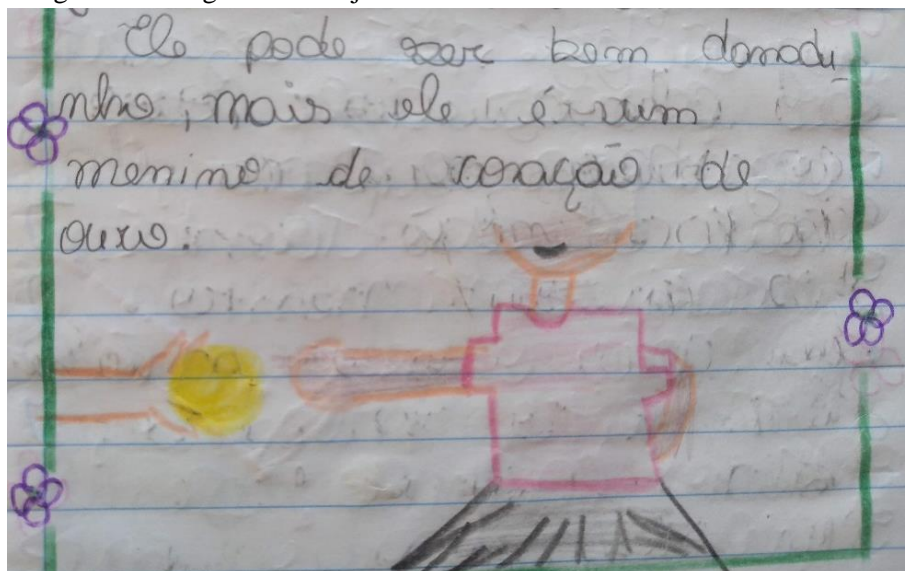 Ele pode ser bem danadi
nho, mais ele é um
menino de coração de
ouro.